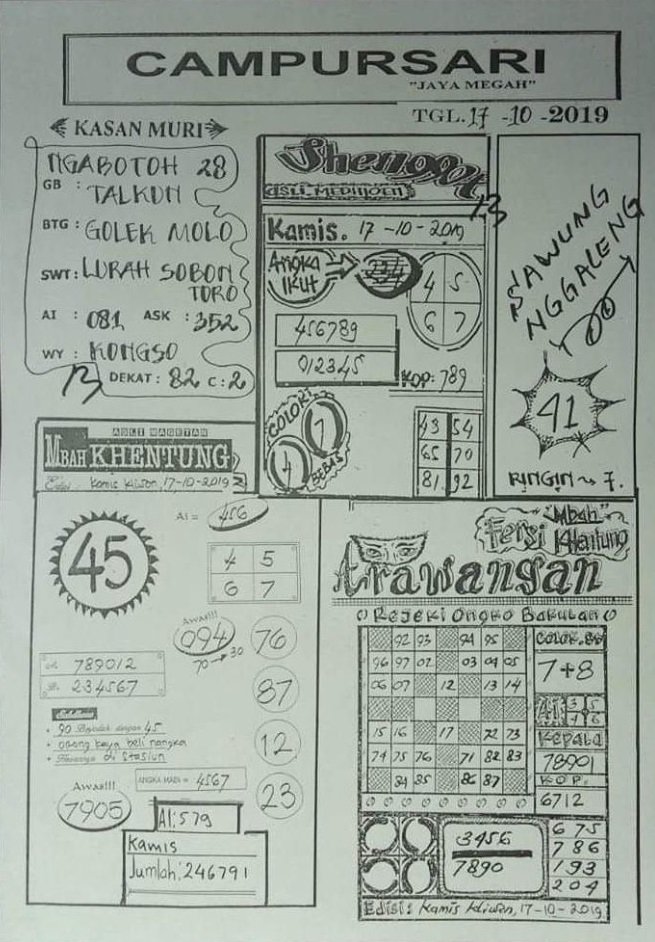 CAMPURSARI
"JAYA MEGAH"
TGL. 17 -10 -2019
KASAN MURI
NGABOTOH 28
GB : TALKUN
BTG : GOLEK MOLO
SWT : LURAH SOBON
TORO
AI : 081 ASK : 352
WY : KONGSO
13 DEKAT : 82 C : 2
Shenggot
ASLI MEDHIOEN
13
Kamis. 17 -10 -2019
ANGKA
IKUT
4 5
6 7
456789
012345
KOP: 789
COLOK
1
4
BEBAS
43 54
65 70
81 92
SAWUNG
NGGALENG
41
RINGIN ~ 7.
ASLI MAGETAN
MBAH KHENTUNG
Edisi: Kamis Kliwon, 17-10-2019
AI = 456
45
4 5
6 7
Awas!!!
094
70 → 30
76
A: 789012
B: 234567
87
• 90 Berjodoh dengan 45
• orang kaya beli nangka
• di stasiun
12
ANGKA MATI = 4567
23
Awas!!!
7905
AI: 579
Kamis
Jumlah: 246791
"Mbah"
Fersi Khentung
Trawangan
Rejeki Ongko Bakulan
92 93 94 95
96 97 02 03 04 05
06 07 12 13 14
15 16 17 72 73
74 75 76 71 82 83
84 85 86 87
COLOK.BS
7+8
AI: 3 5
7 6
KEPALA
78901
KOP.
6712
3456
7890
675
786
193
204
Edisi: Kamis Kliwon, 17-10-2019